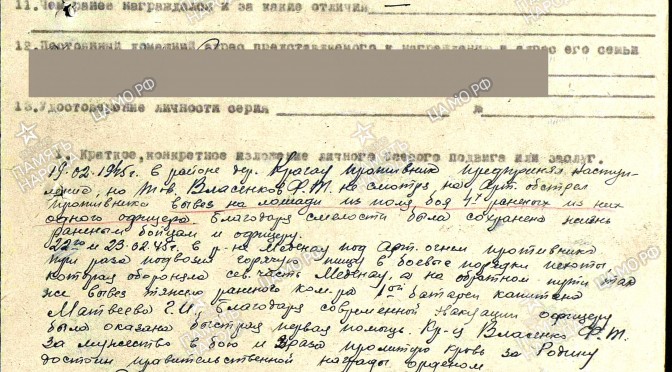 11. Чем ранее награждался и за какие отличия
12. Постоянный домашний адрес представляемого к награждению и адрес его семьи
13. Удостоверение личности серия № 
1. Краткое, конкретное изложение личного боевого подвига или заслуг.
19.02.1945г. в районе дер. Крагау противник предпринял наступ-
ление, но тов. Власенков Ф.Т. не смотря на Арт. обстрел
противника вывез на лошади из поля боя 4х раненых из них
одного офицера. Благодаря смелости была сохранена жизнь
раненым бойцам и офицеру.
22го и 23.02.45г. в р-не Меденау под Арт. огнем противника
три раза подвозил горячую пищу в боевые порядки пехоты,
которая обороняла сев. часть Меденау, а на обратном пути
же вывез раненого ком-ра 1ой батареи капитана
Матвеева Г.И., благодаря эвакуации офицеру
была оказана быстрая первая помощь. Кр-ц Власенко Ф.Т.
за мужество в бою и 2 раза пролитую кровь за Родину
достоин правительственной награды орденом
ПАМЯТЬ НАРОДА
ЦАМО.РФ